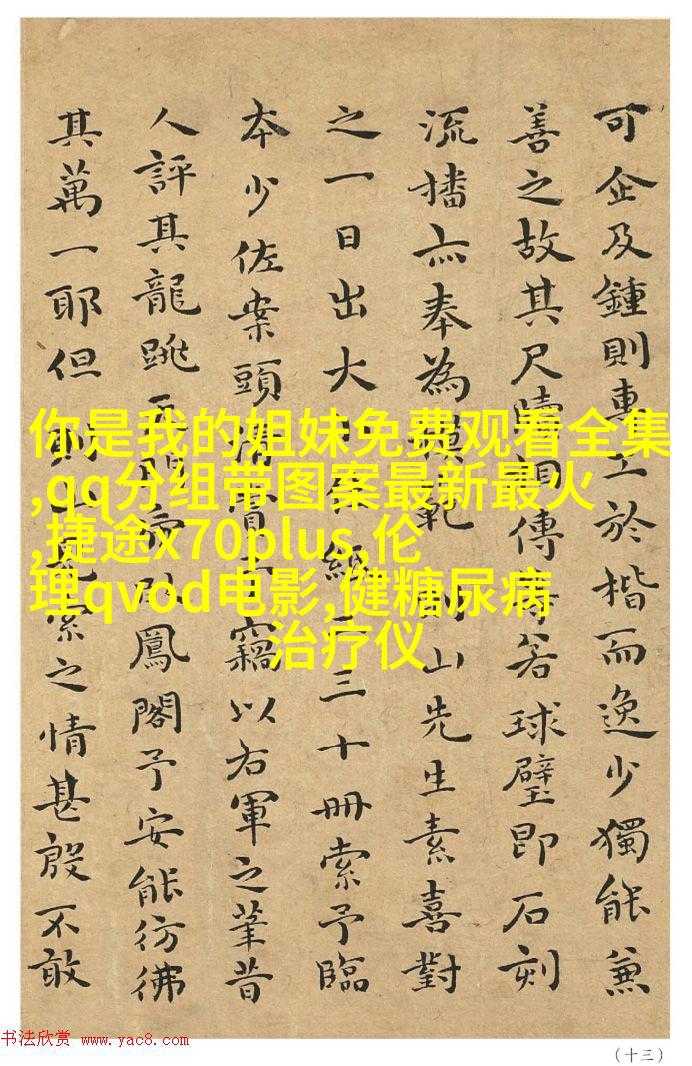 可企及鍾則專工於楷而逸少獨能兼
善之故其尺牘相傳若球璧即石刻
流播亦奉為模範山先生素喜對
之一日出大紙三十冊索予臨
本少佐案頭清賞竊以右軍之筆昔
人評其龍跳天門虎臥鳳閣予安能彷彿
其萬一耶但索之情甚殷不敢
你是我的姐妹免费观看全集
,qq分组带图案最新最火
,捷途x70plus,伦
理qvod电影,健糖尿病
治疗仪
书法欣赏 www.yac8.com
（十三）